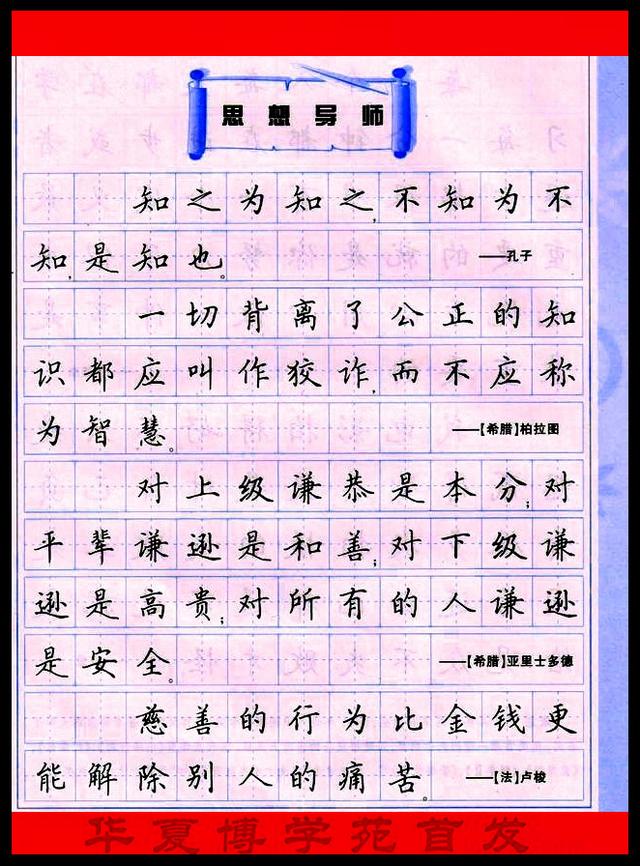 思想导师
知之为知之,不知为不
知,是知也。 ——孔子
一切背离了公正的知
识都应叫作狡诈,而不应称
为智慧。 ——【希腊】柏拉图
对上级谦恭是本分;对
平辈谦逊是和善;对下级谦
逊是高贵;对所有的人谦逊
是安全。 ——【希腊】亚里士多德
慈善的行为比金钱更
能解除别人的痛苦。 ——【法】卢梭
华夏博学苑首发